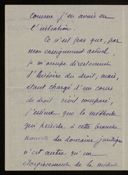 comme j'en avais eu
l'intention.
Ce n'est pas que, par
mon enseignement actuel,
je m'occupe directement
d'histoire du droit, mais,
étant chargé d'un cours
de droit civil comparé,
j'estime que la méthode
qui préside à cette branche
du domaine juridique
n'est autre qu'un
élargissement de la méthode